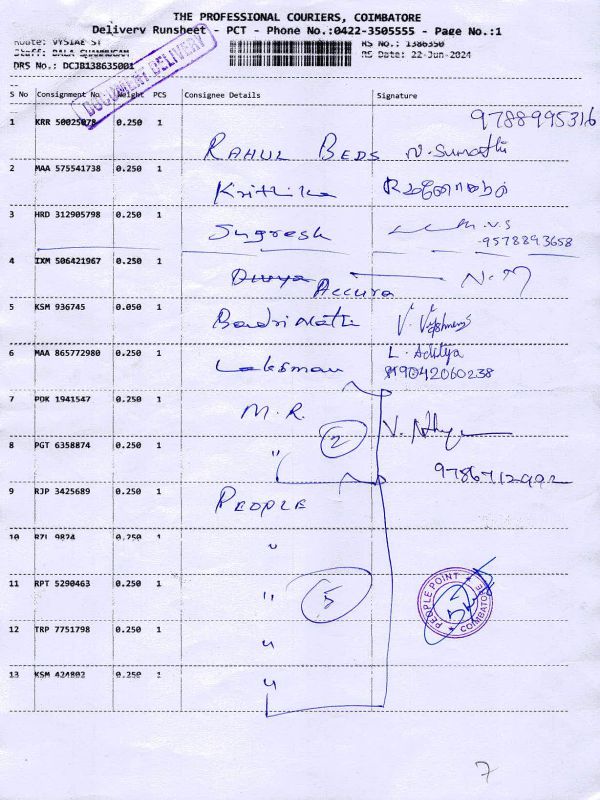 THE PROFESSIONAL COURIERS, COIMBATORE
Delivery Runsheet - PCT - Phone No.:0422-3505555 - Page No.:1
Route: VYSIAL ST RS No.: 1386350
Staff: BALA SHANMUGAM RS Date: 22-Jun-2024
DRS No.: DCJB138635001
DOCUMENT DELIVERY
S No Consignment No Weight PCS Consignee Details Signature
1 KRR 50025078 0.250 1 9788995316
RAHUL BEDS N. Sumathi
2 MAA 575541738 0.250 1
Krithika
3 HRD 312905798 0.250 1
Sugresh M.V.S
9578893658
4 IXM 506421967 0.250 1
Divya Accura N.M
5 KSM 936745 0.050 1
Badrinath
6 MAA 865772980 0.250 1 L. Aditya
Laksman 9042060238
7 PDK 1941547 0.250 1
M.R.
2
8 PGT 6358874 0.250 1
"
9 RJP 3425689 0.250 1
PEOPLE
10 RZL 9824 0.250 1
"
11 RPT 5290463 0.250 1
" 5
PEOPLE POINT
COIMBATORE
12 TRP 7751798 0.250 1
"
13 KSM 424802 0.250 1
"
7